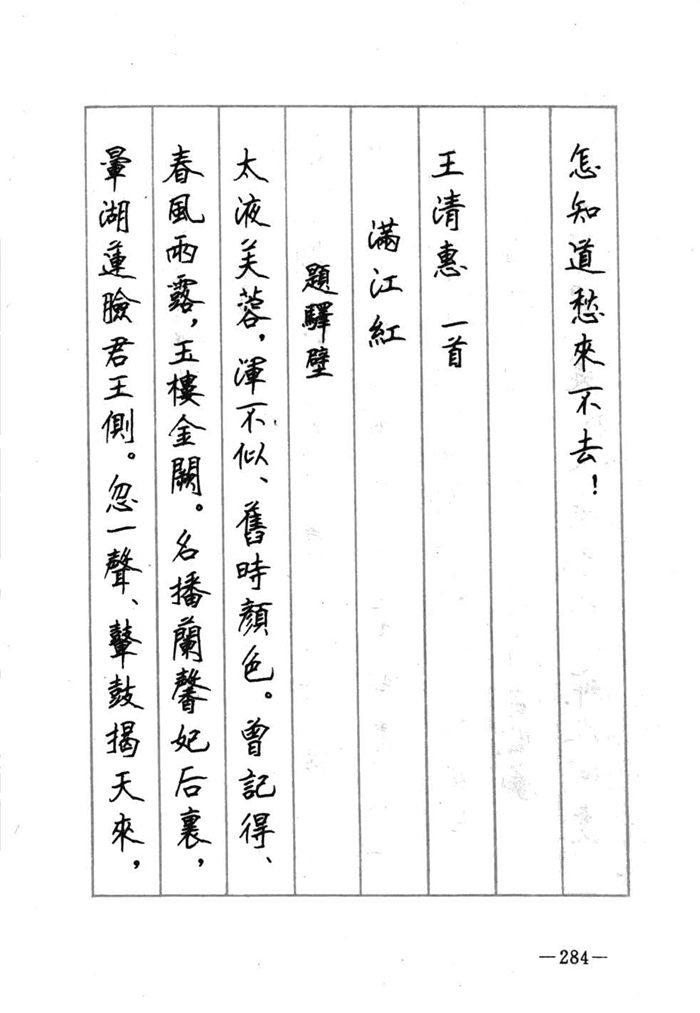 怎知道愁來不去！
王清惠　一首
滿江紅
題驛壁
太液芙蓉，渾不似、舊時顏色。曾記得、
春風雨露，玉樓金闕。名播蘭馨妃后裏，
暈湖蓮臉君王側。忽一聲、鼙鼓揭天來，
—284—